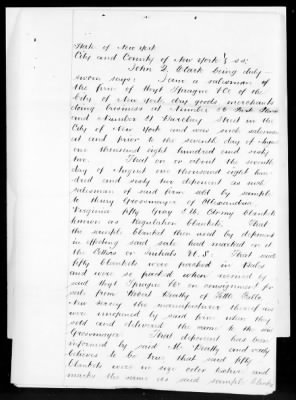 State of New York
City and County of New York } ss;
John G. Clark being duly
sworn says: I am a salesman of
the firm of Hoyt Sprague & Co. of the
City of New York, dry goods merchants
doing business at Number 56 Park Place
and Number 51 Barclay Street in the
City of New York and was such salesman
at and prior to the seventh day of August
one thousand eight hundred and sixty
two. That on or about the seventh
day of August one thousand eight hun-
dred and sixty two deponent as such
salesman of said firm sold by sample
to Henry Groverman of Alexandria
Virginia fifty Gray 5 lb Army blankets
known as Regulation blankets. That
the sample blanket then used by deponent
in effecting said sale had marked on it
the letters or initials U.S. That said
fifty blankets were packed in bales
and were so packed when received by
said Hoyt Sprague & Co on consignment for
sale from Robert Beatty of Little Falls
New Jersey the manufacturer thereof and
were unopened by said firm when they
sold and delivered the same to the said
Groverman. That deponent has been
informed by said Mr. Beatty and verily
believes to be true that said fifty
blankets were in size color texture and
marks the same as said sample blanket